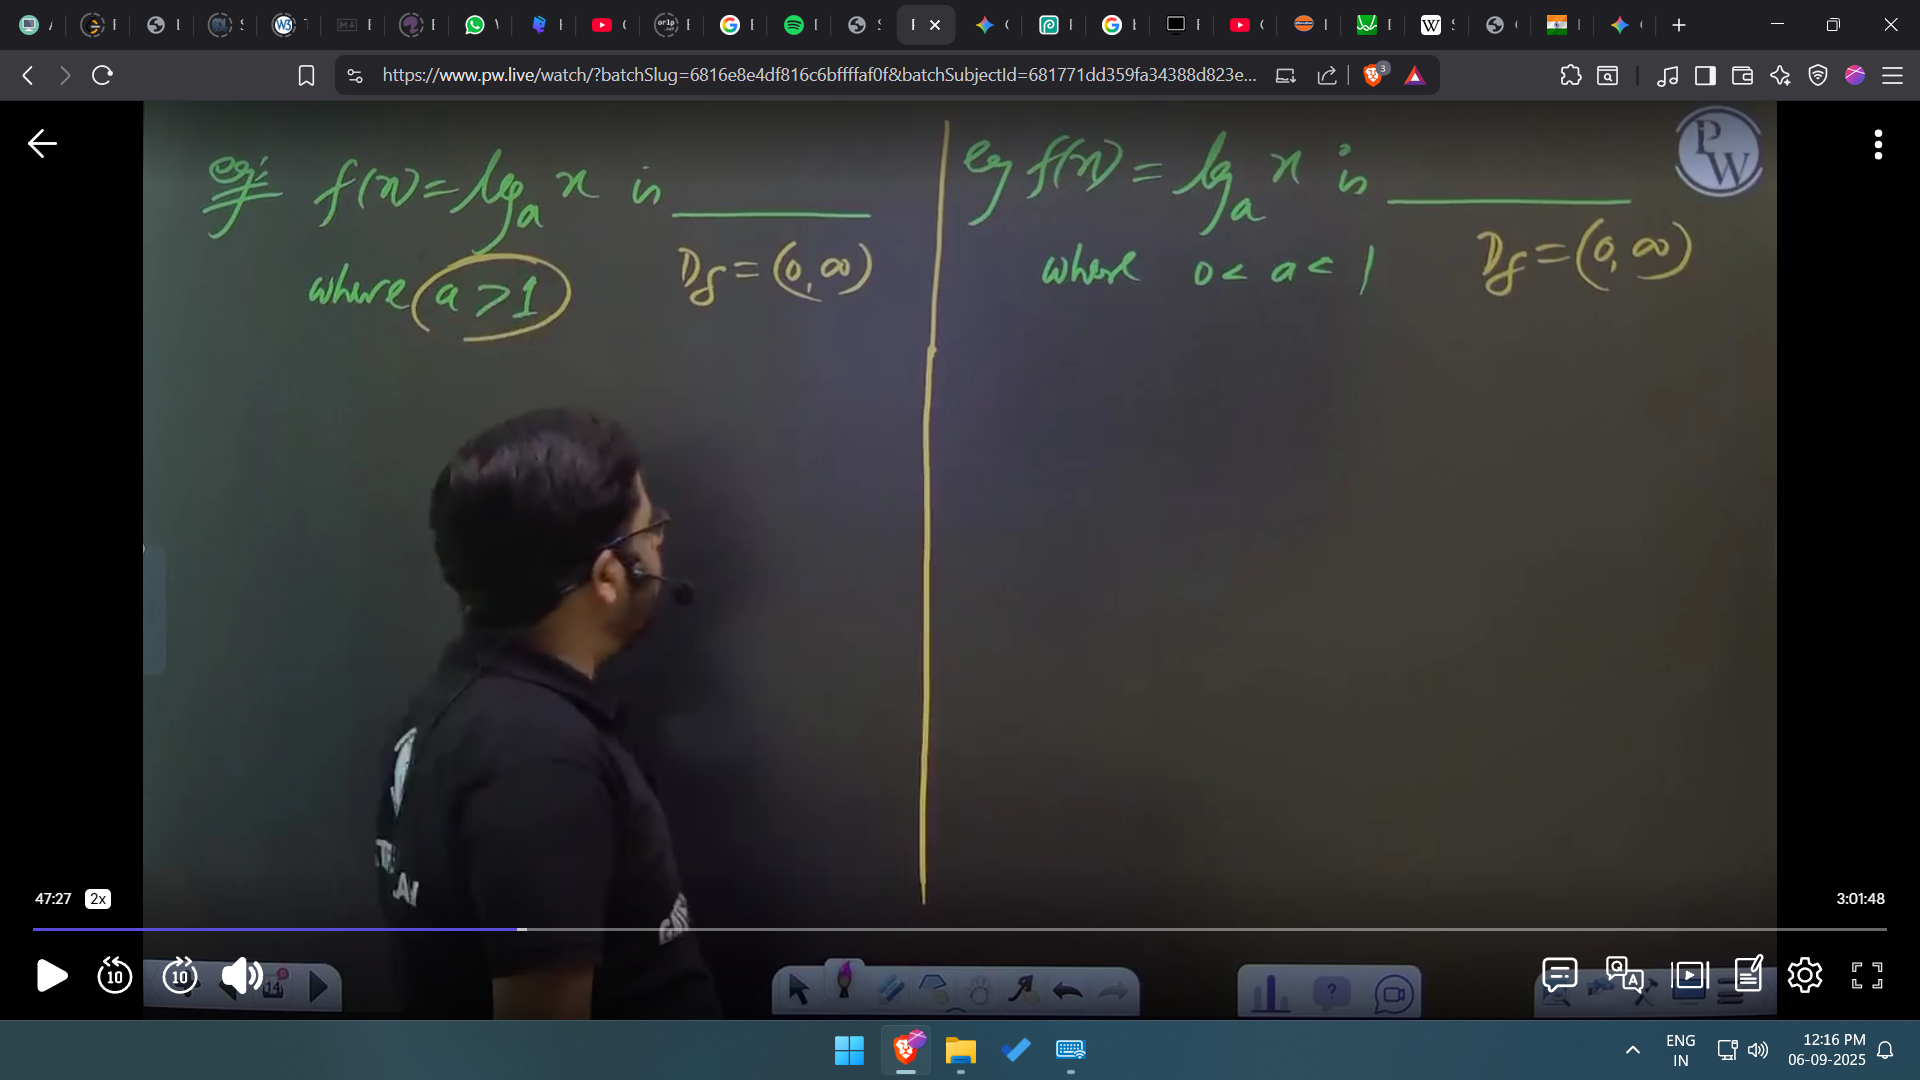 https://www.pw.live/watch/?batchSlug=6816e8e4df816c6bffffaf0f&batchSubjectId=681771dd359fa34388d823e...
3
PW
eg: f(x) = log_a x is ________
where a > 1 D_f = (0, ∞)
eg f(x) = log_a x is ________
where 0 < a < 1 D_f = (0, ∞)
47:27 2x
3:01:48
10 10
14
Q A
ENG
IN
12:16 PM
06-09-2025